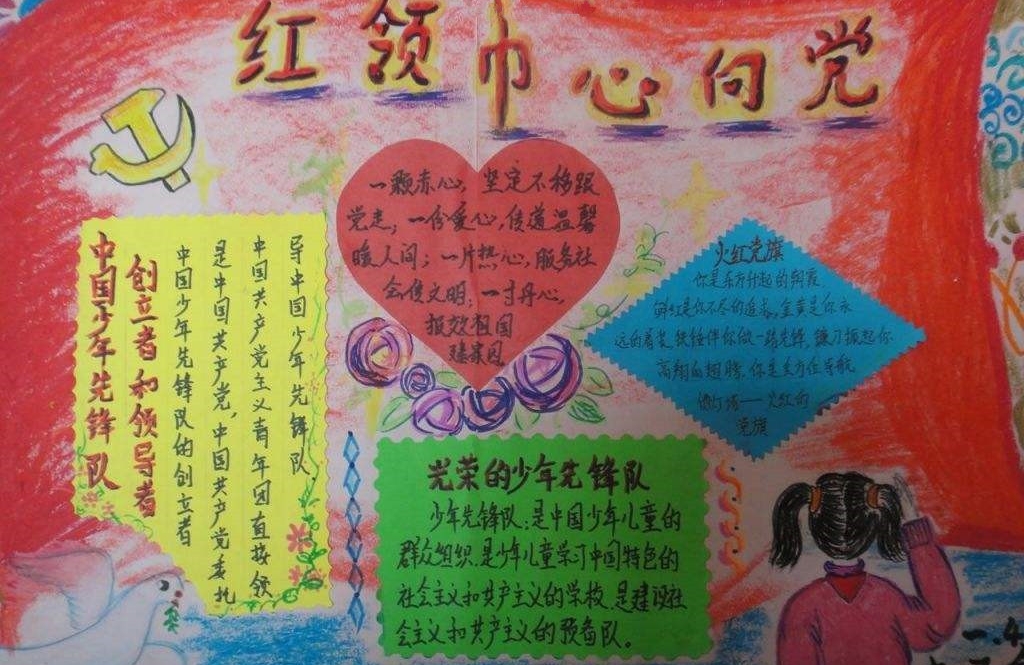 红领巾心向党
一颗赤心,坚定不移跟
党走;一份爱心,传递温馨
暖人间;一片热心,服务社
会传文明;一寸丹心,
报效祖国
中国少年先锋队
创立者和领导者
中国少年先锋队的创立者
是中国共产党,中国共产党委托
中国共产党主义青年团直接领
导中国少年先锋队
火红党旗
你是东方升起的朝霞
鲜红是你不尽的追求,金黄是你永
远的着装,铁锤伴你做一路先锋,镰刀振起你
高翔的翅膀,你是全方位导航
的灯塔——火红的
党旗
光荣的少年先锋队
少年先锋队:是中国少年儿童的
群众组织.是少年儿童学习中国特色的
社会主义和共产主义的学校.是建设社
会主义和共产主义的预备队。
一.4